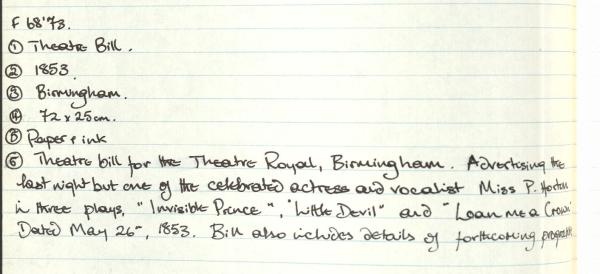 F 68'73.
① Theatre Bill.
② 1853.
③ Birmingham.
④ 72 x 25cm.
⑤ Paper & ink
⑥ Theatre bill for the Theatre Royal, Birmingham. Advertising the
last night but one of the celebrated actress and vocalist Miss P. Horton
in three plays, "Invisible Prince", "Little Devil" and "Loan me a Crown"
Dated May 26th, 1853. Bill also includes details of forthcoming program